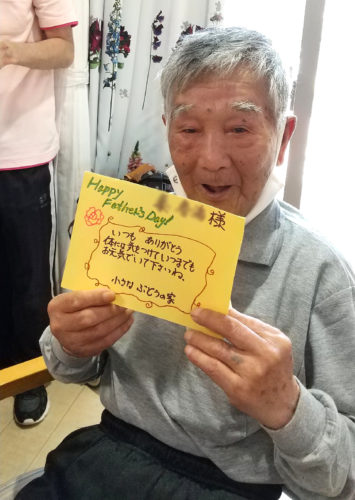 様
Happy
Father's Day!
いつも ありがとう
体には気をつけていつまでも
お元気でいて下さいね。
小さな ぶどうの家